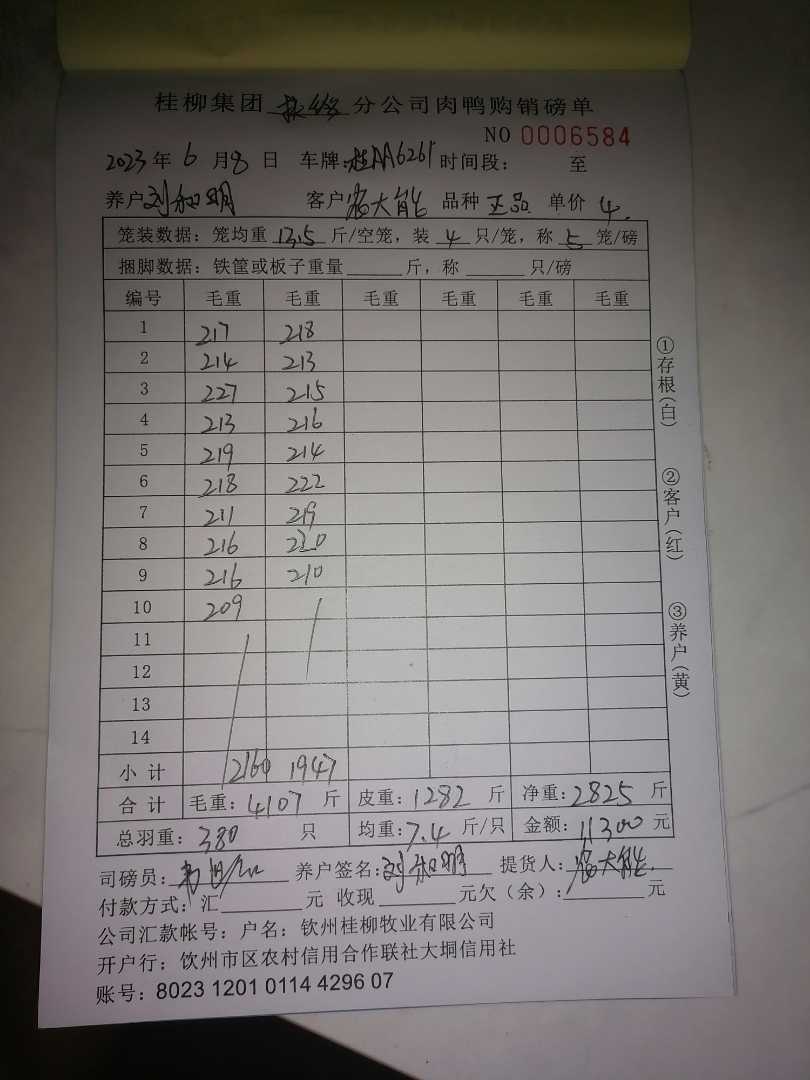 桂柳集团 分公司肉鸭购销磅单
NO 0006584
2023 年 6 月 8 日 车牌：桂AA6261 时间段： 至
养户 刘和明 客户 大能 品种 正品 单价 4.
笼装数据：笼均重 13.5 斤/空笼，装 4 只/笼，称 5 笼/磅
捆脚数据：铁筐或板子重量 斤，称 只/磅
编号 毛重 毛重 毛重 毛重 毛重 毛重
1 217 218
2 214 213
3 227 215
4 213 216
5 219 214
6 218 222
7 211 219
8 216 220
9 216 210
10 209
11
12
13
14
小计 2160 1947
合计 毛重：4107 斤 皮重：1282 斤 净重：2825 斤
总羽重：380 只 均重：7.4 斤/只 金额：11300 元
司磅员： 养户签名：刘和明 提货人：大能
付款方式：汇 元 收现 元欠（余）： 元
公司汇款帐号：户名：钦州桂柳牧业有限公司
开户行：钦州市区农村信用合作联社大垌信用社
账号：8023 1201 0114 4296 07
①存根（白）
②客户（红）
③养户（黄）